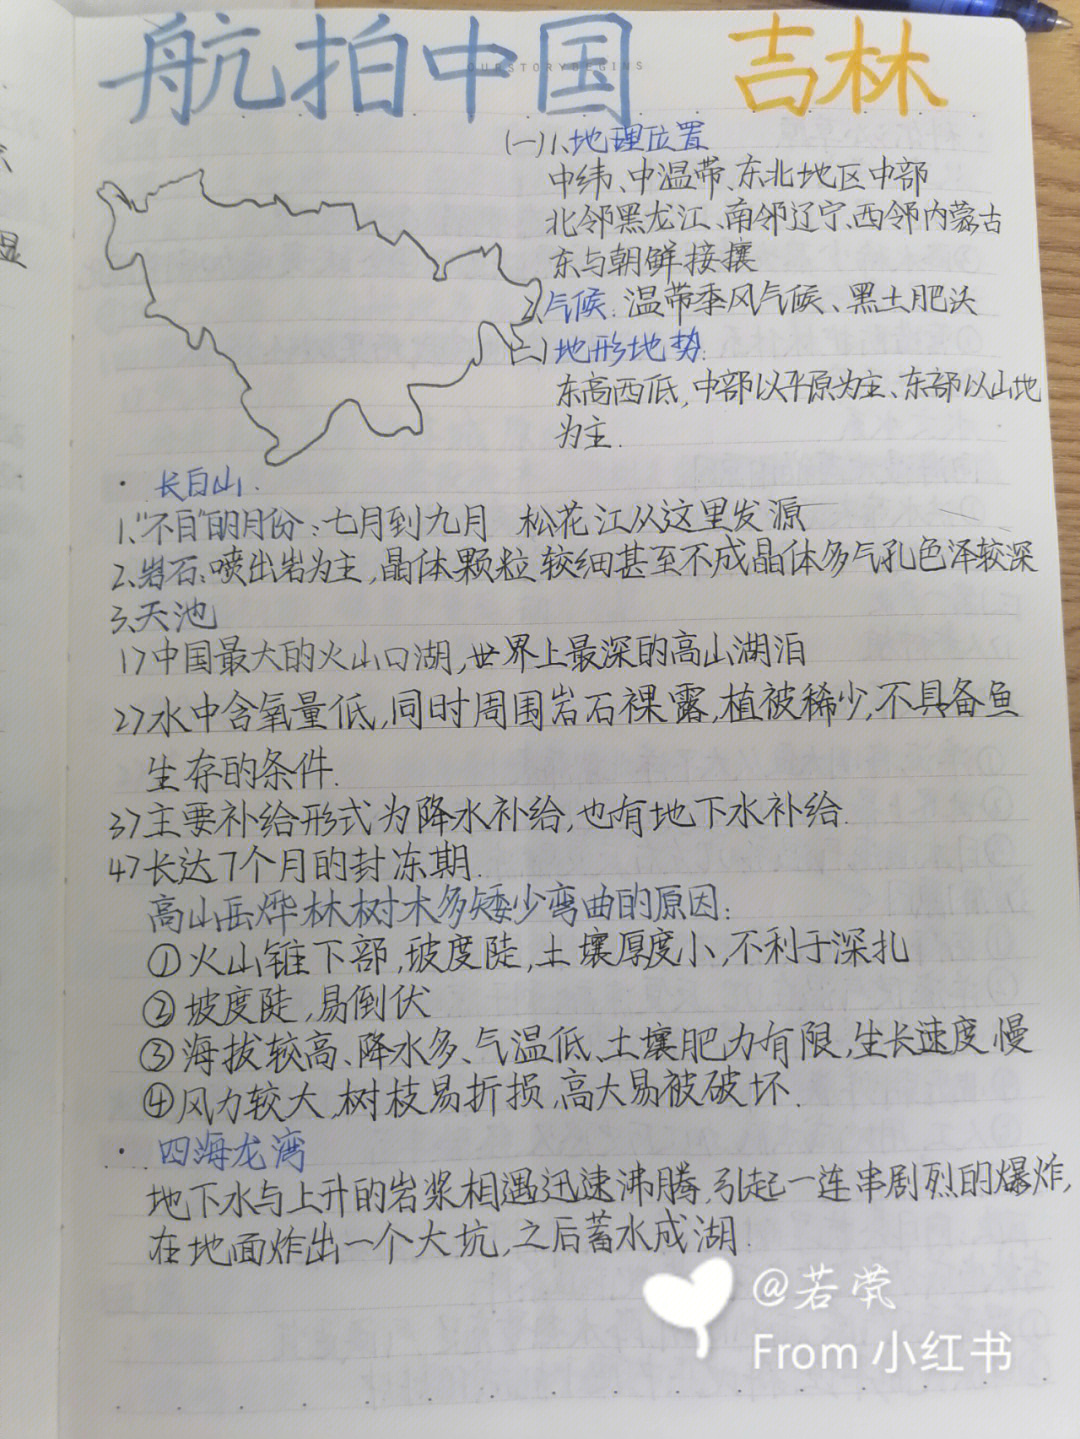 航拍中国 吉林
OURSTORYBEGINS
(一)1、地理位置
中纬、中温带、东北地区中部
北邻黑龙江、南邻辽宁、西邻内蒙古
东与朝鲜接攘
2、气候：温带季风气候、黑土肥沃
(二)地形地势：
东高西低，中部以平原为主、东部以山地
为主.
· 长白山.
1、"不白"的月份：七月到九月 松花江从这里发源
2、岩石：喷出岩为主，晶体颗粒较细甚至不成晶体多气孔色泽较深
3、天池
1>中国最大的火山口湖，世界上最深的高山湖泊
2>水中含氧量低，同时周围岩石裸露，植被稀少，不具备鱼
生存的条件.
3>主要补给形式为降水补给，也有地下水补给.
4>长达7个月的封冻期.
高山岳烨林树木多矮少弯曲的原因：
①火山锥下部，玻度陡，土壤厚度小，不利于深扎
②坡度陡，易倒伏
③海拔较高、降水多、气温低、土壤肥力有限，生长速度慢
④风力较大，树枝易折损，高大易被破坏.
· 四海龙湾
地下水与上升的岩浆相遇迅速沸腾，引起一连串剧烈的爆炸，
在地面炸出一个大坑，之后蓄水成湖.
@若茕
From 小红书